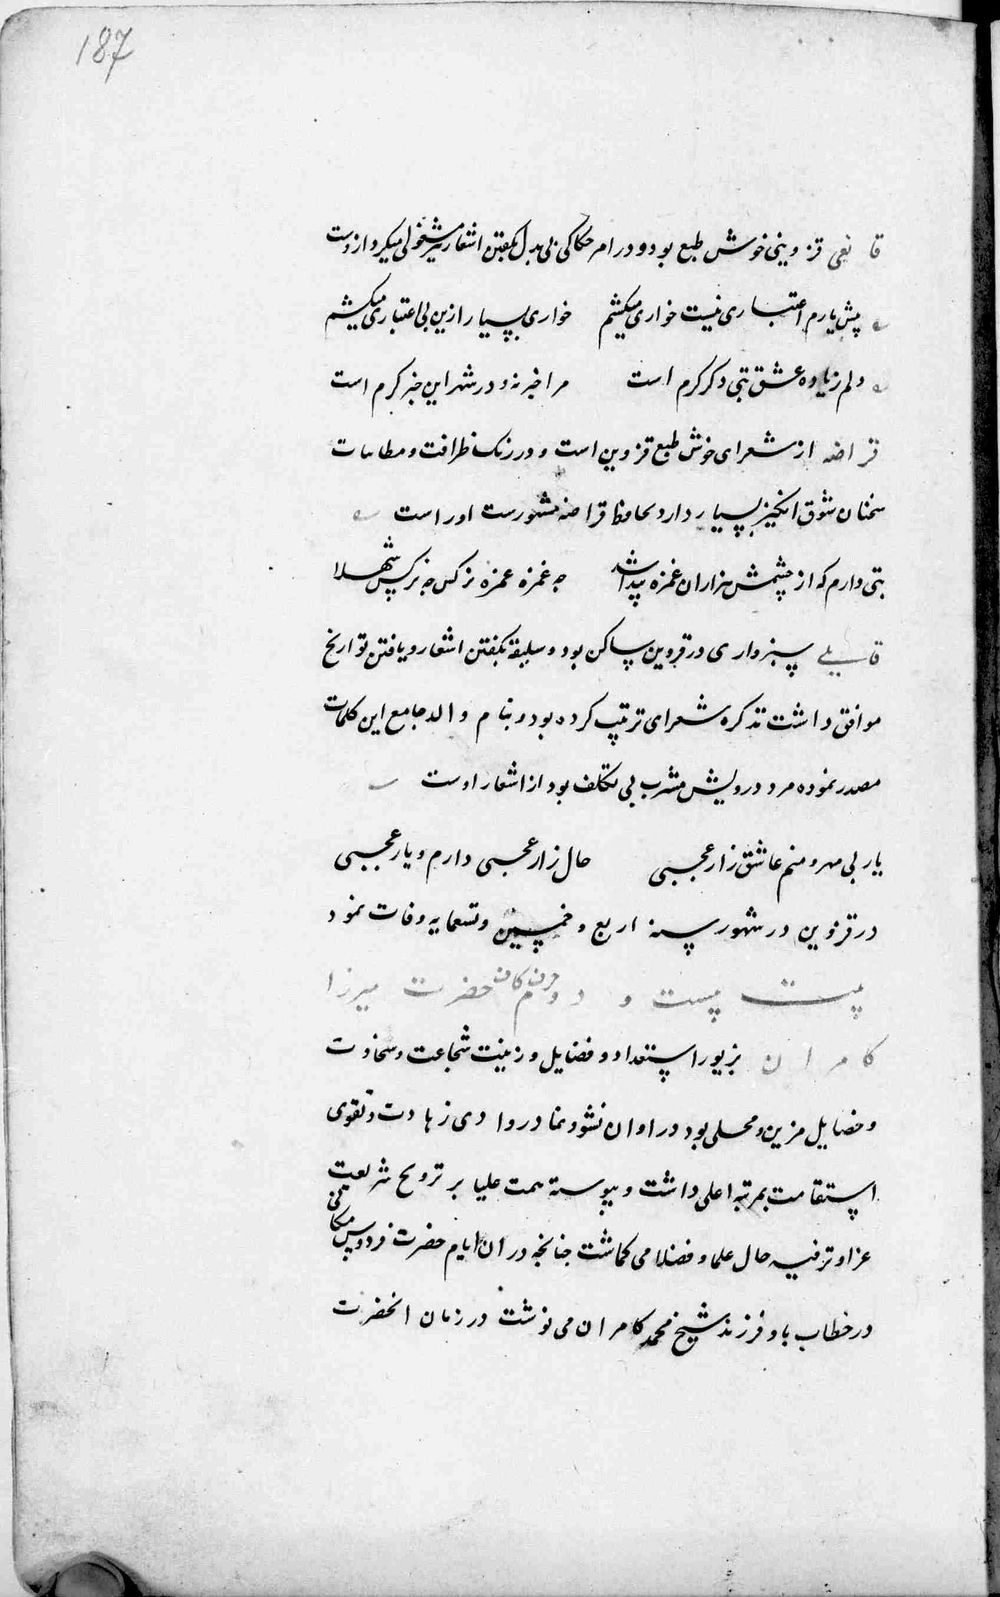 187
قانعی قزوینی خوش طبع بود و در امر حکاکی بی بدل بگفتن اشعار نیز مشغولی میکرد ازوست
پیش یارم اعتباری نیست خواری میکشم خواری بسیار ازین بی اعتباری میکشم
دلم زیاده عشق بتی دکر کرم است مرا خبر نه و در شهر این خبر کرم است
قراضه از شعرای خوش طبع قزوین است و در زنک ظرافت و مطایبات
سخنان شوق انکیز بسیار دارد بحافظ قراضه مشهورست اوراست
بتی دارم که از چشمش هزاران غمزه پیدا شد چه غمزه غمزه نرکس چه نرکس نرکس شهلا
قابلی سبزواری در قزوین ساکن بود و سلیقه بگفتن اشعار و یافتن تواریخ
موافق داشت تذکره شعرای ترتیب کرده بود و بنام والد جامع این کلمات
مصدر نموده مرد درویش مشرب بی تکلف بود از اشعار اوست
یار بی مهر و منم عاشق زار عجبی حال زار عجبی دارم و یار عجبی
در قزوین در شهور سنه اربع و خمسین و تسعمایه وفات نمود
بیت بیست و دوم حرف کاف حضرت میرزا
کامران بزیور استعداد و فضایل و زینت شجاعت و سخاوت
و خصایل مزین و محلی بود در اوان نشو و نما در وادی زهادت و تقوی
استقامت بمرتبه اعلی داشت و پیوسته همت علیا بر ترویج شریعت
غرا و ترفیه حال علما و فضلا می کماشت جنانجه در ان ایام حضرت فردوس مکانی
در خطاب باو فرزند شیخ محمد کامران می نوشت در زمان انحضرت